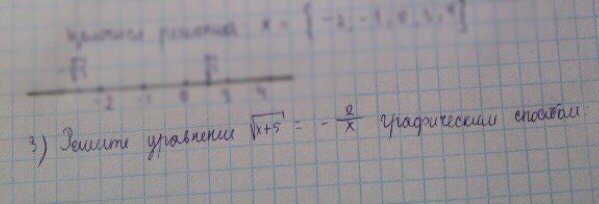 решения: x = {-2, -1, 0, 3, 4}
-2 -1 0 3 4
3) Решите уравнении √x+5 = - 2/x графическим способом: